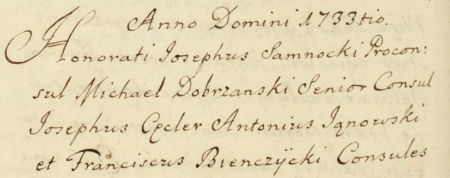 Anno Domini 1733tio.
Honorati Josephus Samnocki Procon:
sul Michael Dobrzanski Senior Consul
Josephus Cxler Antonius Ignowski
et Franciscus Bienczÿcki Consules